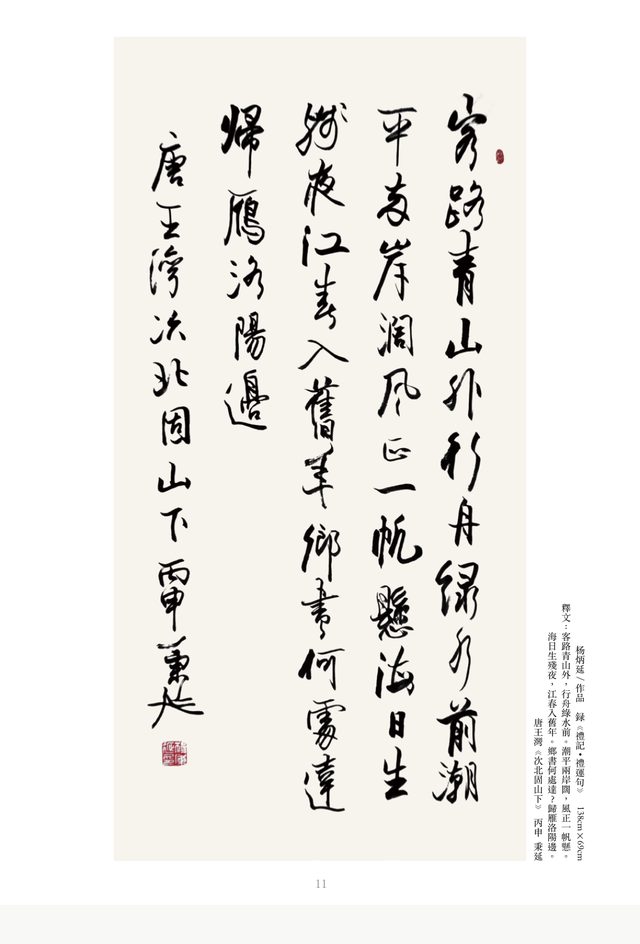 客路青山外行舟緑水前潮
平兩岸闊風正一帆懸海日生
殘夜江春入舊年鄉書何處達
歸雁洛陽邊
唐王灣次北固山下丙申秉延
杨炳延/作品　録《禮記•禮運句》　138cm×69cm
釋文：客路青山外，行舟綠水前。潮平兩岸闊，風正一帆懸。
海日生殘夜，江春入舊年。鄉書何處達？歸雁洛陽邊。
唐王灣《次北固山下》　丙申　秉延
11